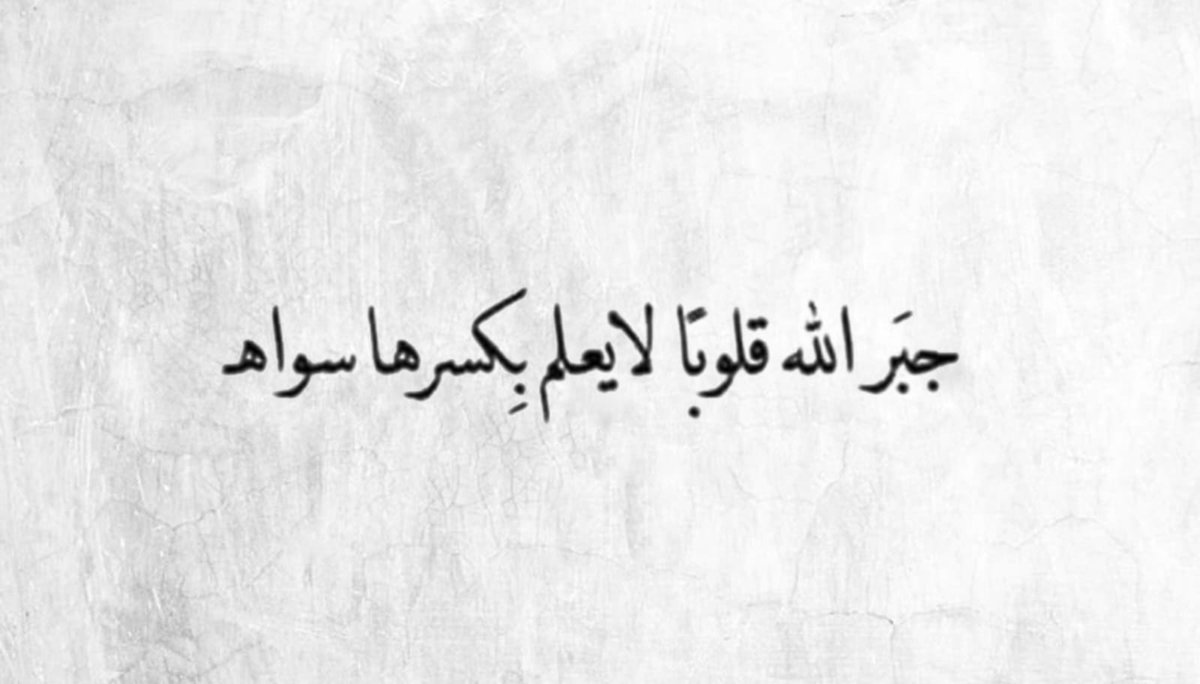 جبَر الله قلوبًا لايعلم بِكسرها سواهـ